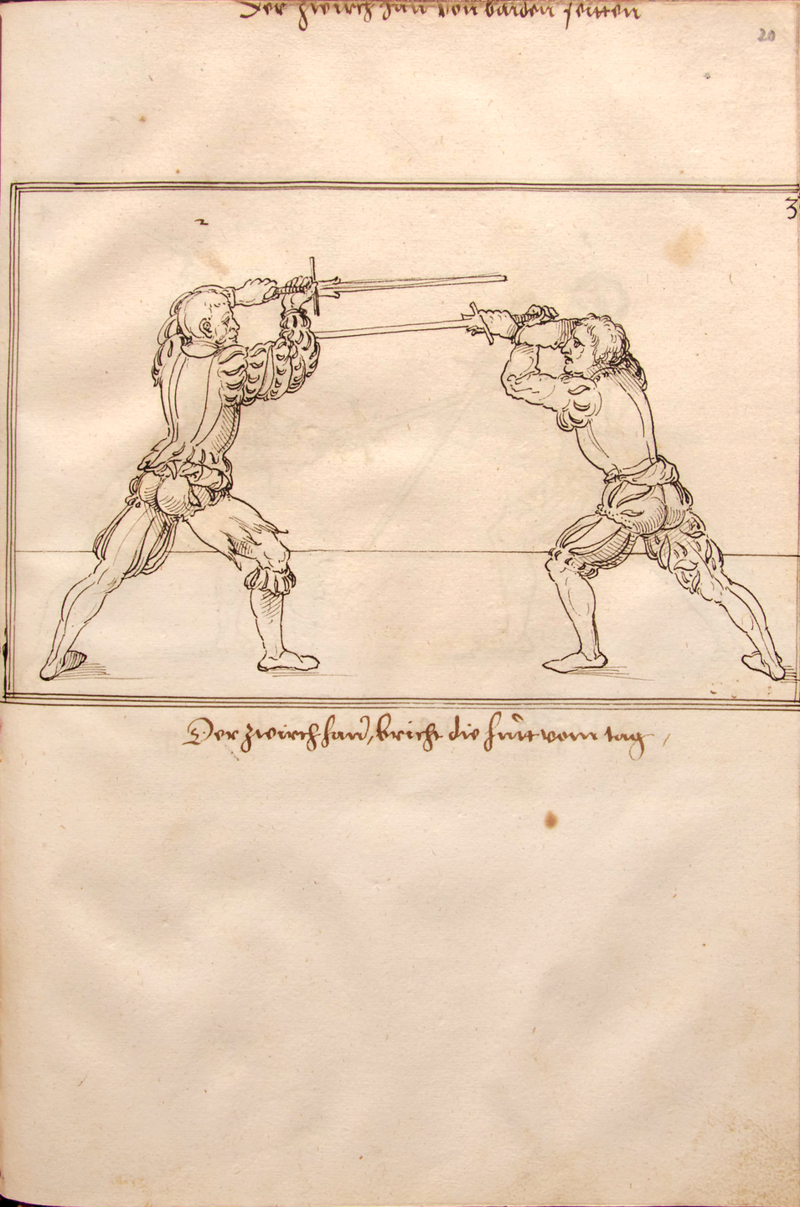 Der zwirch haw von baiden seitten
20
3
2
Der zwirch haw, bricht die hůt vom tag,